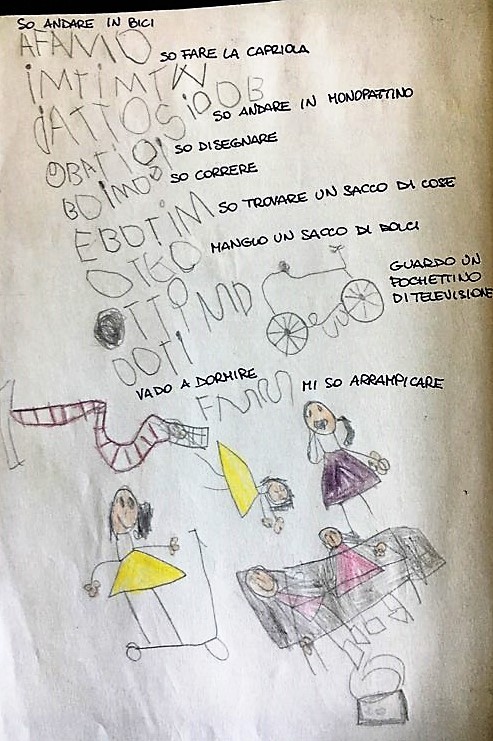 SO ANDARE IN BICI
AFAMO
SO FARE LA CAPRIOLA
IMTIMTW
SO ANDARE IN MONOPATTINO
SO DISEGNARE
OBATIOI
SO CORRERE
BOIMOS
SO TROVARE UN SACCO DI COSE
EBOTIM
MANGIO UN SACCO DI DOLCI
OTEO
GUARDO UN
POCHETTINO
DI TELEVISIONE
OTTIMD
OOTI
VADO A DORMIRE
MI SO ARRAMPICARE